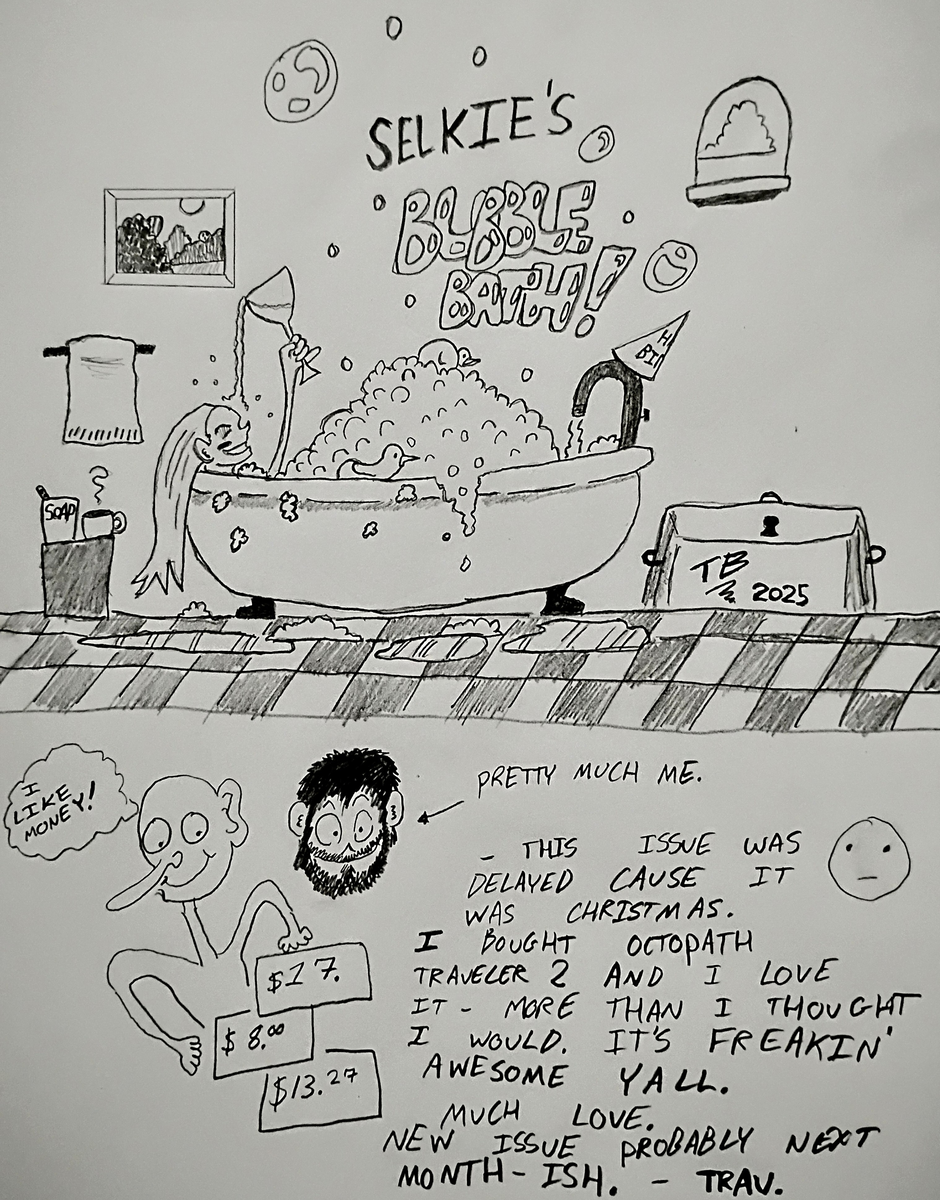 SELKIE'S
BUBBLE
BATH!
H
BI
SOAP
TB
2025
I
LIKE
MONEY!
PRETTY MUCH ME.
- THIS ISSUE WAS
DELAYED CAUSE IT
WAS CHRISTMAS.
I BOUGHT OCTOPATH
TRAVELER 2 AND I LOVE
IT - MORE THAN I THOUGHT
I WOULD. IT'S FREAKIN'
AWESOME YALL.
MUCH LOVE.
NEW ISSUE PROBABLY NEXT
MONTH-ISH. - TRAV.
$17.
$8.00
$13.27